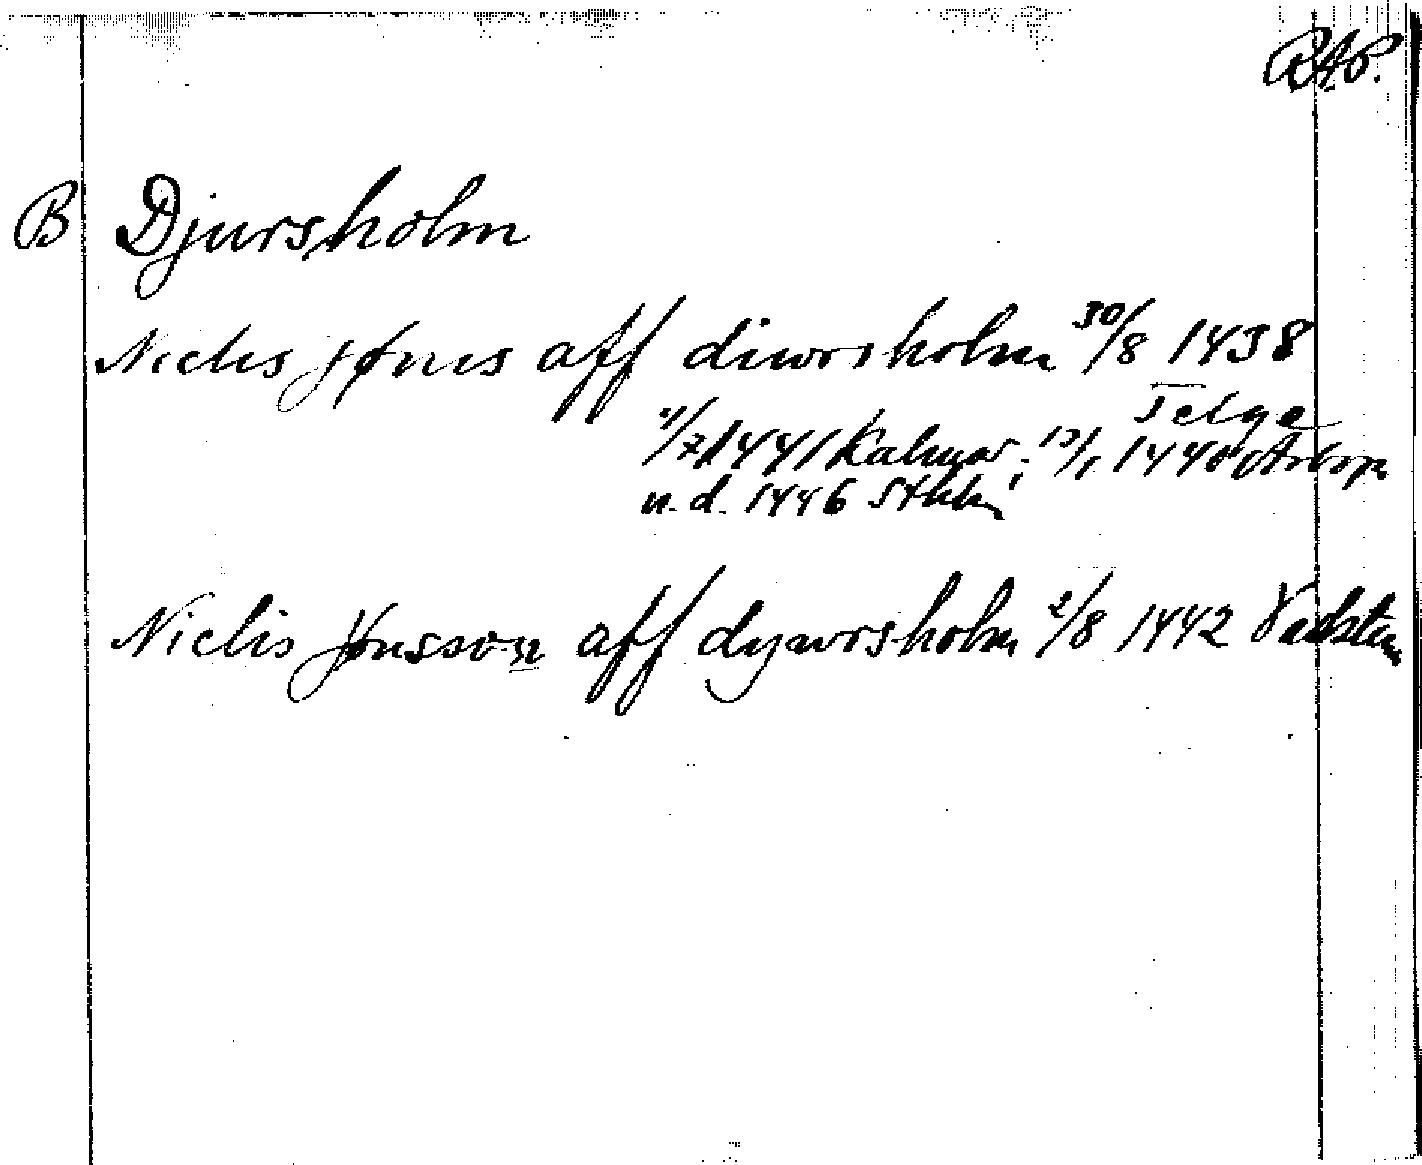 RAP.
B Djursholm
Niclis jønis aff diwrsholm 30/8 1438
Telge
1/7 1441 Kalmar; 13/1 1440 Arboga
u. d. 1446 Sthlm
Niclis Jønsson aff dywrsholm 2/8 1442 Vadsten